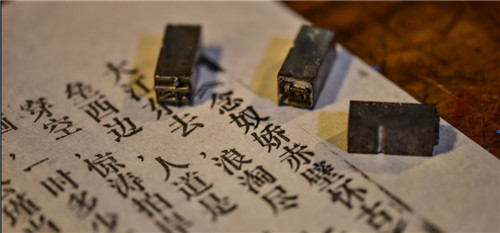 念奴娇赤壁怀古
大江东去，浪淘尽
垒西边，人道是
穿空，惊涛拍岸
，一时多少